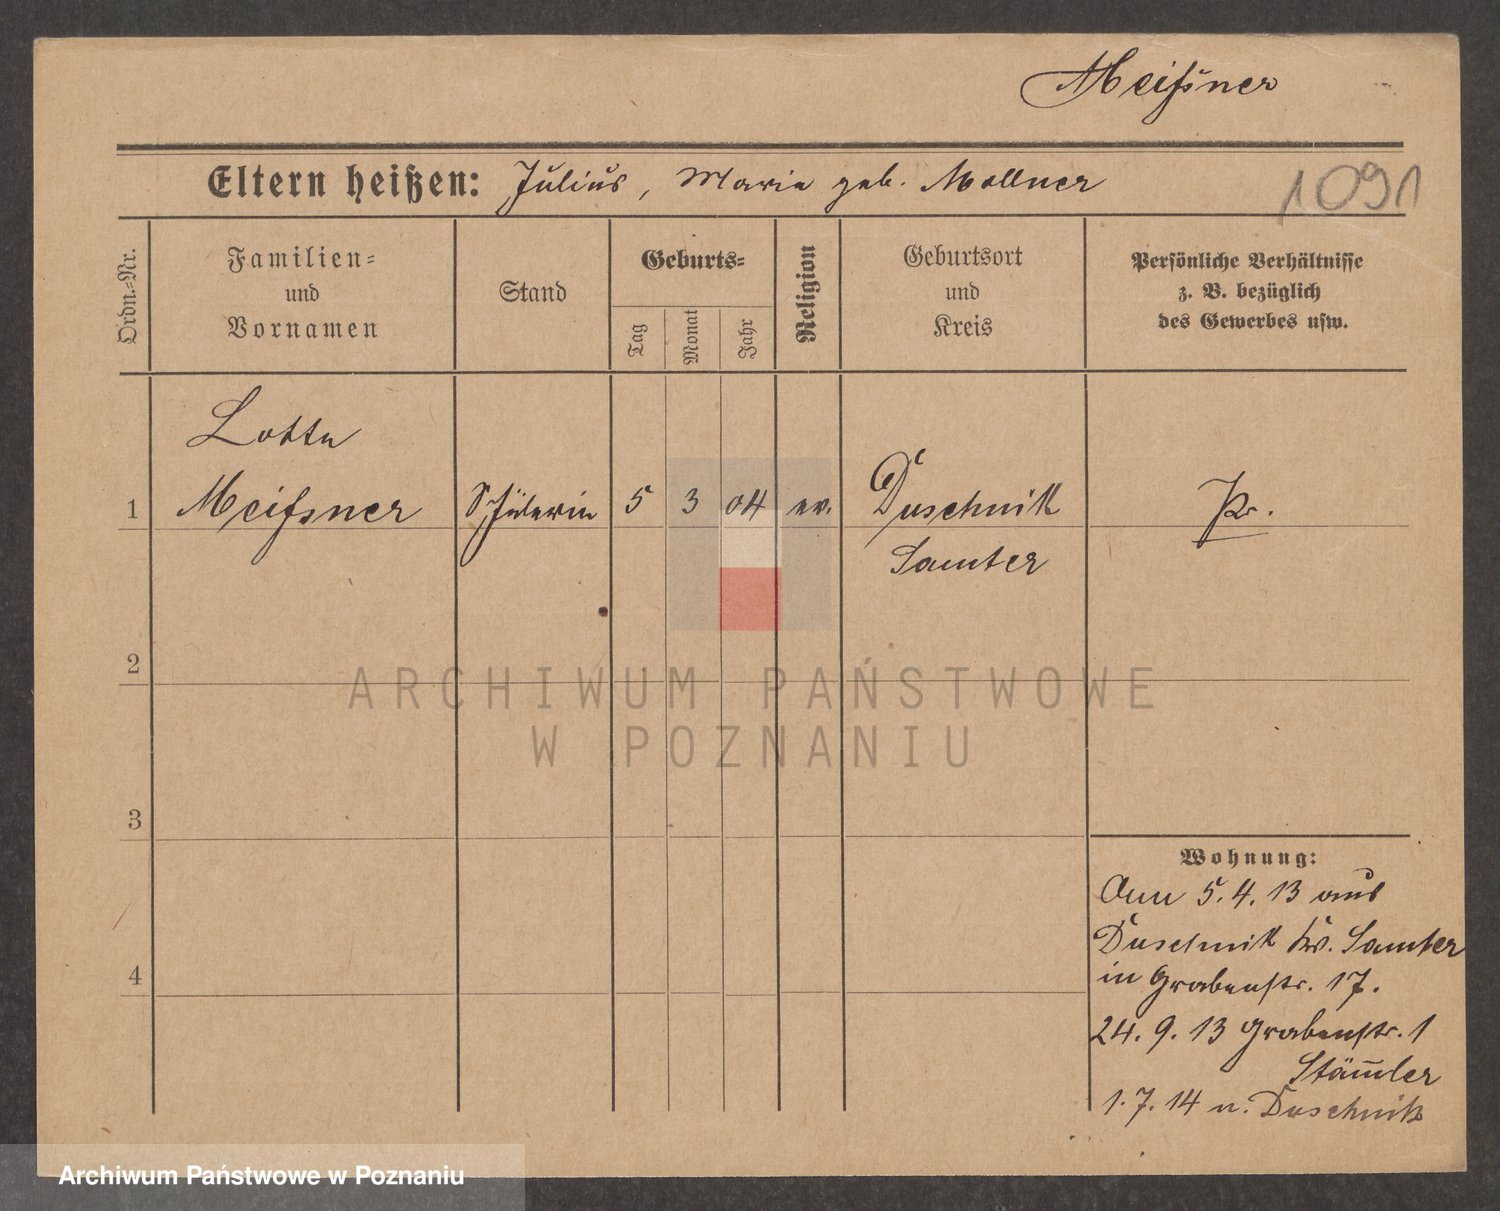 Meißner
Eltern heißen: Julius, Marie geb. Mollner
1091
Ordn.-Nr.
Familien-
und
Vornamen
Stand
Geburts-
Tag
Monat
Jahr
Religion
Geburtsort
und
Kreis
Persönliche Verhältnisse
z. B. bezüglich
des Gewerbes usw.
Lotte
1 Meißner Schülerin 5 3 04 ev. Duschnik Pr.
Samter
2
ARCHIWUM PAŃSTWOWE
W POZNANIU
3
Wohnung:
Am 5. 4. 13 aus
Duschnik Kr. Samter
4
in Grabenstr. 17.
24. 9. 13 Grabenstr. 1
Stäm̄ler
1. 7. 14 n. Duschnik
Archiwum Państwowe w Poznaniu